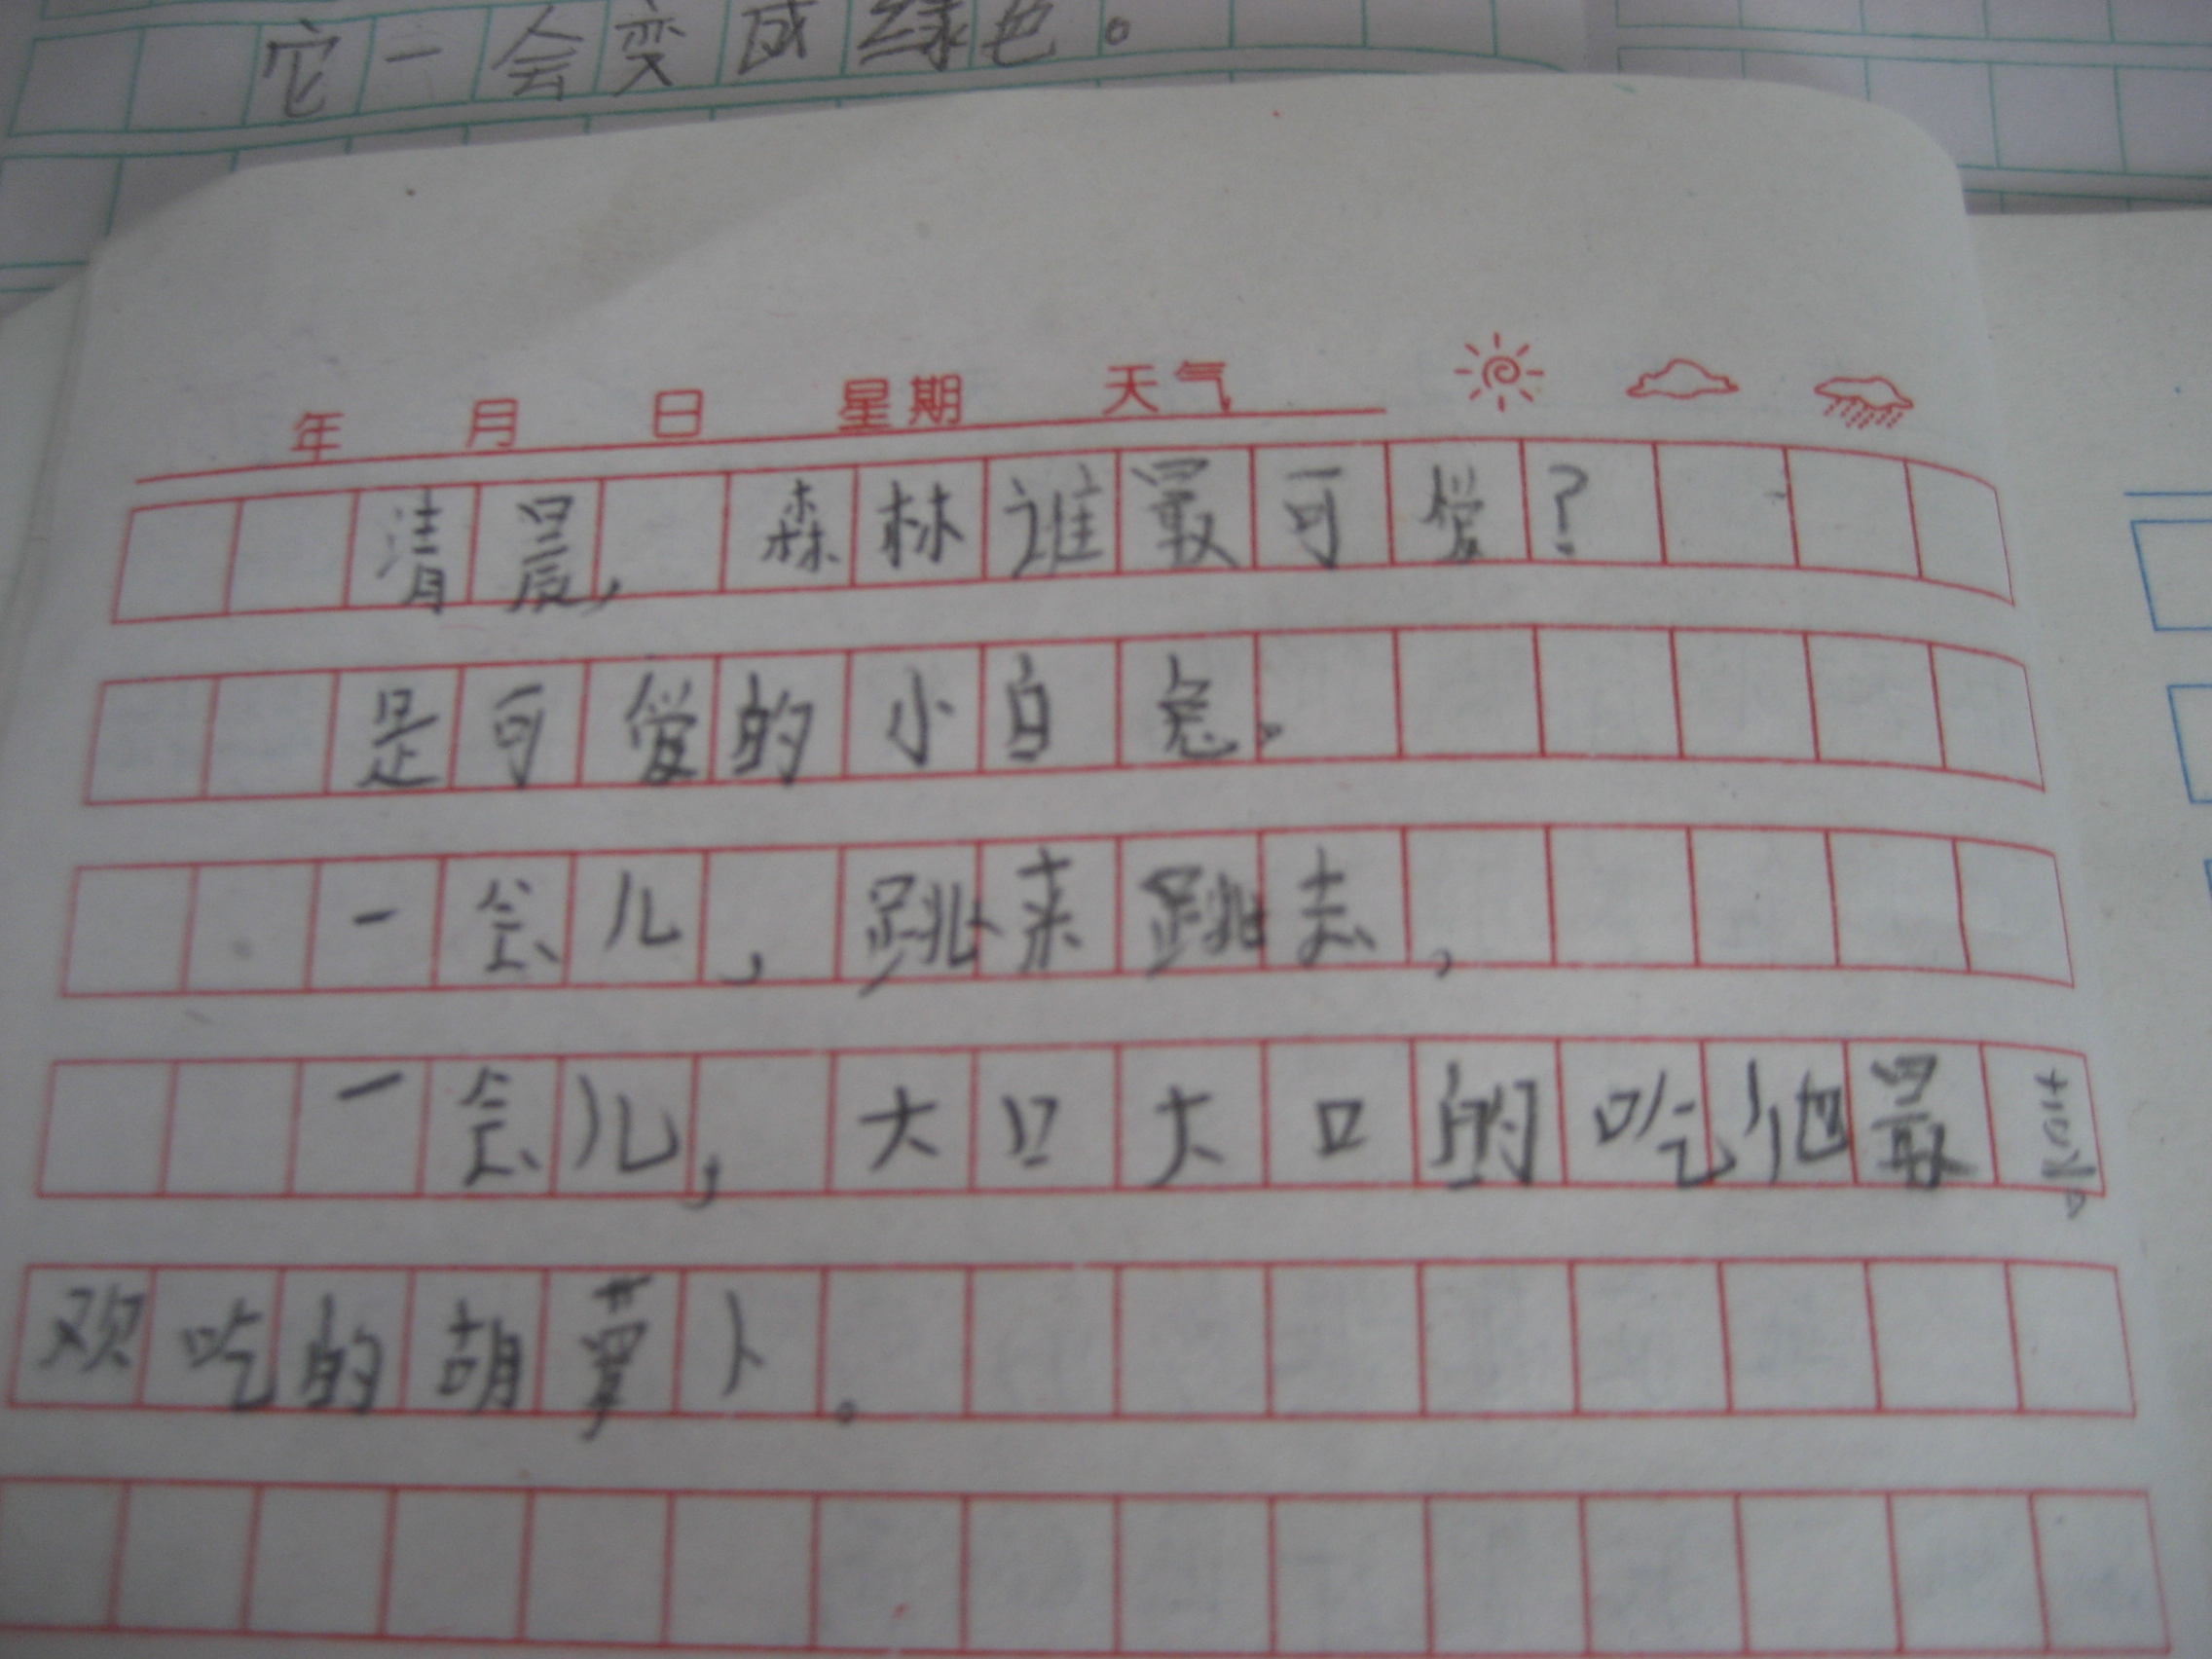 它一会变成绿色。
年 月 日 星期 天气
清晨，森林谁最可爱？
是可爱的小白兔。
一会儿，跳来跳去，
一会儿，大口大口的吃他最
欢吃的胡萝卜。